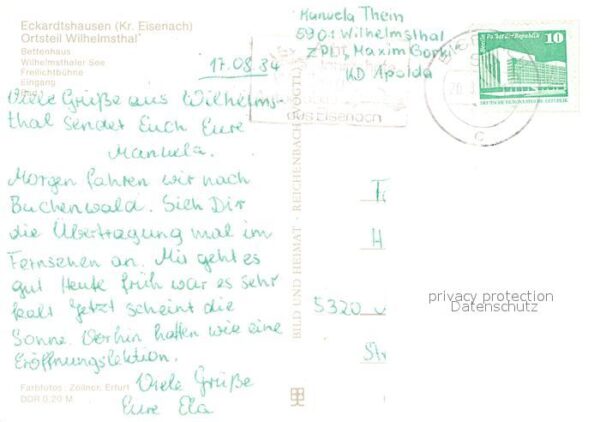 Eckardtshausen (Kr. Eisenach)
Ortsteil Wilhelmsthal
Bettenhaus
Wilhelmsthaler See
Freilichtbühne
Eingang
17.08.84
Viele Grüße aus Wilhelms-
thal sendet Euch Eure
Manuela.
Morgen fahren wir nach
Buchenwald. Sieh Dir
die Übertragung mal im
Fernsehen an. Mir geht es
gut Heute früh war es sehr
kalt jetzt scheint die
Sonne. Vorhin hatten wir eine
Eröffnungslektion.
Viele Grüße
Eure Ela
Farbfotos: Zöllner, Erfurt
DDR 0,20 M
BILD UND HEIMAT · REICHENBACH (VOGTL)
Manuela Thein
5901 Wilhelmsthal
ZPL, Maxim Gorki
KD Apolda
aus Eisenach
Berlin Palast der Republik
10
DEUTSCHE DEMOKRATISCHE REPUBLIK
c
T
H
5320
Str
privacy protection
Datenschutz